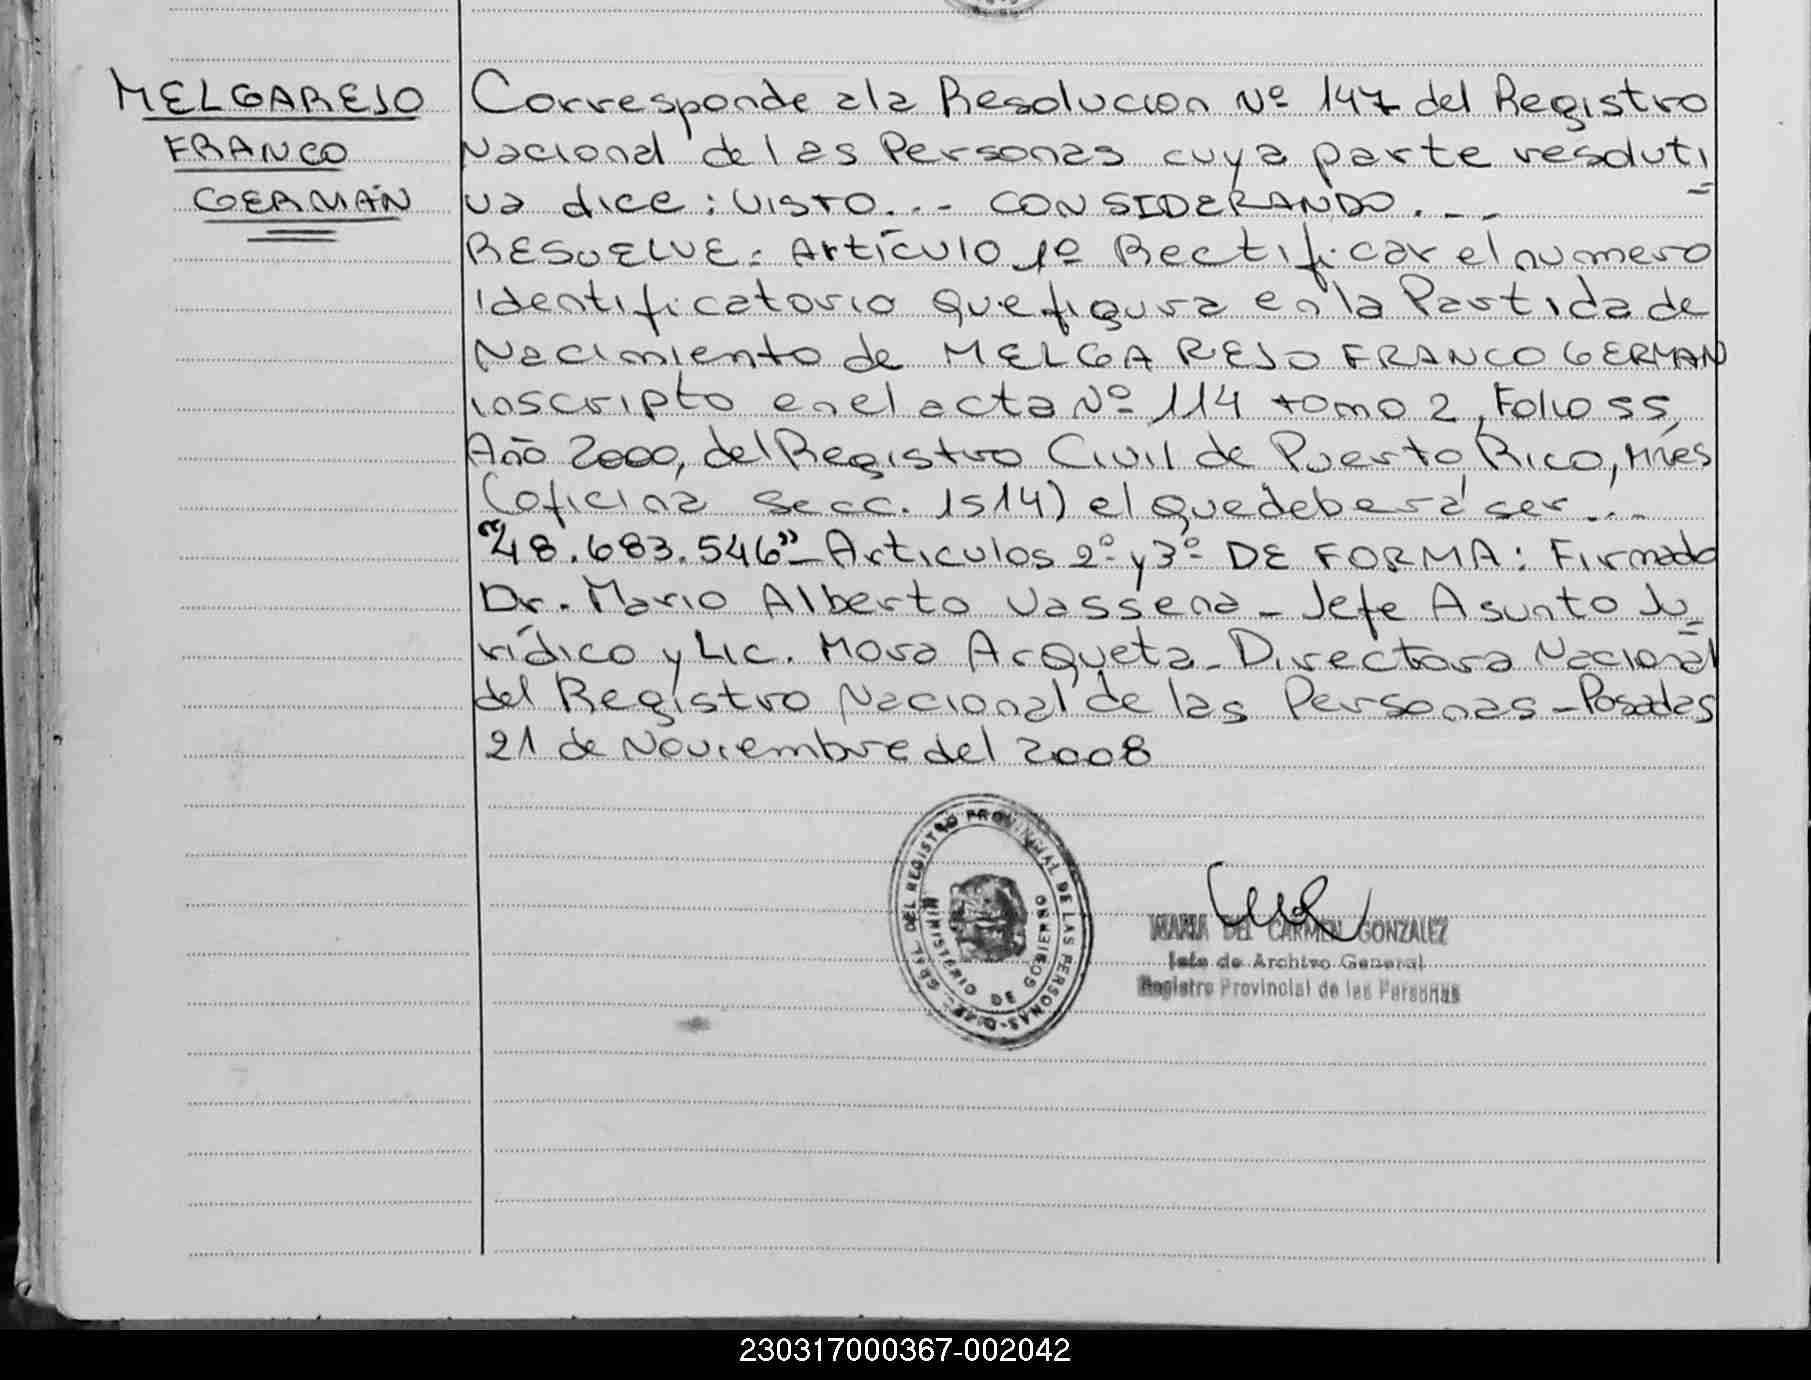 MELGAREJO
FRANCO
GERMÁN
Corresponde a la Resolucion Nº 147 del Registro
Nacional de las Personas cuya parte resoluti
va dice: VISTO... CONSIDERANDO...
RESUELVE: Artículo 1º Rectificar el numero
identificatorio que figura en la Partida de
Nacimiento de MELGAREJO FRANCO GERMAN
inscripto en el acta Nº 114 tomo 2, Folio 55,
Año 2000, del Registro Civil de Puerto Rico, Mnes
(oficina Secc. 1514) el que deberá ser...
"48.683.546"- Articulos 2º y 3º DE FORMA: Firmado
Dr. Mario Alberto Vassena - Jefe Asunto Ju=
rídico y Lic. Mora Arqueta - Directora Nacional
del Registro Nacional de las Personas - Posadas
21 de Noviembre del 2008
GRAL DEL REGISTRO PROVINCIAL DE LAS PERSONAS
MINISTERIO DE GOBIERNO
MARIA DEL CARMEN GONZALEZ
Jefe de Archivo General
Registro Provincial de las Personas
230317000367-002042